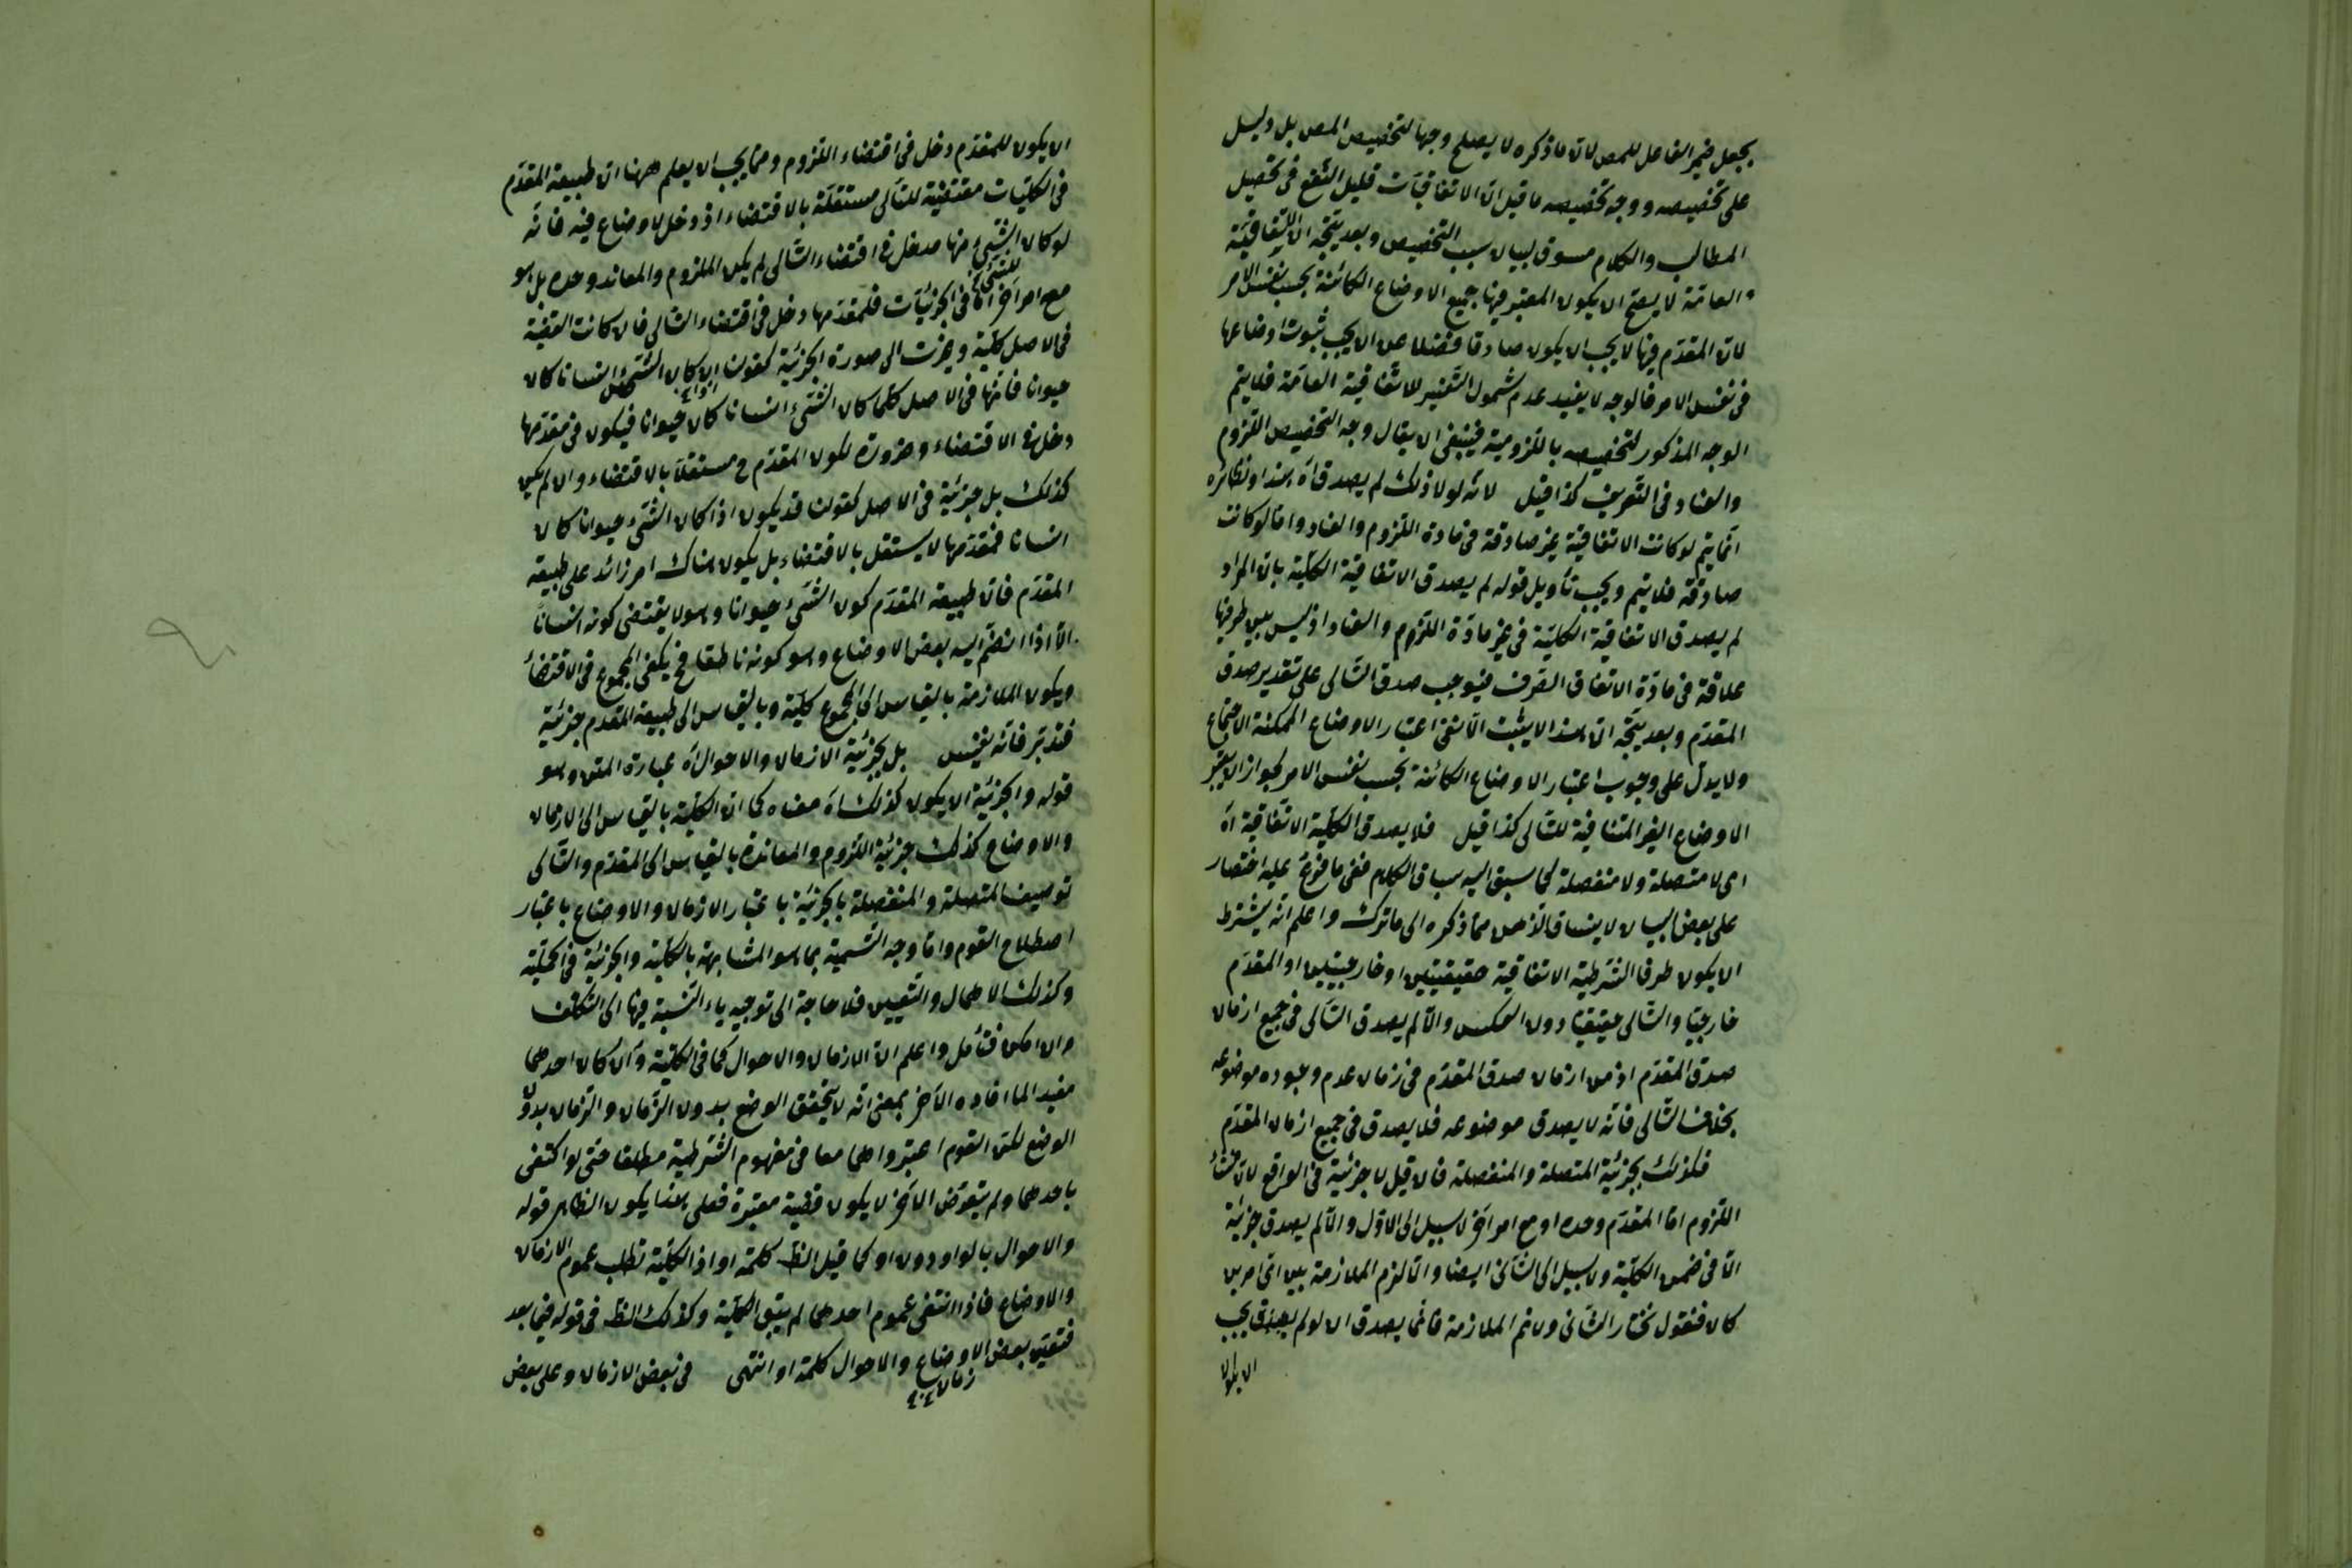 يجعل ضمير الفاعل للمص لان ما ذكره لا يصلح وجها لتخصيص المص بل دليل
على تخصيصه ووجه تخصيصه ما قيل ان الاتفاقيات قليل النفع فى تحصيل
المطالب والكلام مسوق لبيان سبب التخصيص وبعد يتجه ان الاتفاقية
العامة لا يصح ان يكون المعتبر فيها جميع الاوضاع الكائنة بحسب نفس الامر
لان المقدم فيها لا يجب ان يكون صادقا فضلا عن ان يجب ثبوت اوضاعها
فى نفس الامر فالوجه لا يفيد عدم شمول التفسير للاتفاقية العامة فلا يتم
الوجه المذكور لتخصيصه باللزومية فينبغى ان يقال وجه التخصيص اللزوم
والعناد فى التعريف كذا قيل لانه لولا ذلك لم يصدق اه هذا ونظائره
انما يتم لو كانت الاتفاقية غير صادقة فى مادة اللزوم والعناد واما لو كانت
صادقة فلا يتم ويجب تأويل قوله لم يصدق الاتفاقية الكلية بان المراد
لم يصدق الاتفاقية الكلية فى غير مادة اللزوم والعناد اذ ليس بين طرفيها
علاقة فى مادة الاتفاق الصرف فيوجب صدق التالى على تقدير صدق
المقدم وبعد يتجه ان هذا لا يثبت الا نفى اعتبار الاوضاع الممكنة الاجتماع
ولا يدل على وجوب اعتبار الاوضاع الكائنة بحسب نفس الامر لجواز ان يعتبر
الاوضاع الغير المتنافية للتالى كذا قيل فلا يصدق الكلية الاتفاقية اه
اى لا متصلة ولا منفصلة كما سبق اليه سياق الكلام ففى ما فرع عليه اختصار
على بعض البيان لا ينساق الذهن مما ذكره الى ما ترك واعلم انه يشترط
ان يكون طرفا الشرطية الاتفاقية حقيقيتين او خارجيتين او المقدم
خارجيا والتالى حقيقيا دون العكس والا لم يصدق التالى فى جميع ازمان
صدق المقدم اذ من ازمان صدق المقدم فى زمان عدم وجود موضوعه
بخلاف التالى فانه لا يصدق موضوعه فلا يصدق فى جميع ازمان المقدم
فكذلك بجزئية المتصلة والمنفصلة فان قيل لا جزئية فى الواقع لان منشأ
اللزوم اما المقدم وحده او مع امر اخر لا سبيل الى الاول والا لم يصدق جزئية
الا فى ضمن الكلية ولا سبيل الى الثانى ايضا والا لزم الملازمة بين اى امرين
كان فنقول نختار الثانى ولا نم الملازمة فانما يصدق ان لو لم يصدق يجب
ان يكون
ان يكون للمقدم دخل فى اقتضاء اللزوم ومما يجب ان يعلم ههنا ان طبيعة المقدم
فى الكليات مقتضية للتالى مستقلة بالاقتضاء اذ دخل لاوضاع فيه فانه
لو كان لشئ منها مدخل فى اقتضاء التالى لم يكن الملزوم والمعاند وحده بل هو
مع امر اخر اما فى الجزئيات فلمقدمها دخل فى اقتضاء التالى فان كانت القضية
فى الاصل كلية وغيرت الى صورة الجزئية كقولنا ان كان الشئ انسانا كان
حيوانا فانها فى الاصل كلما كان الشئ انسانا كان حيوانا فيكون فى مقدمها
دخل فى الاقتضاء وضرورة لكون المقدم ح مستقلا بالاقتضاء وان لم يكن
كذلك بل جزئية فى الاصل كقولنا قد يكون اذا كان الشئ حيوانا كان
انسانا فمقدمها لا يستقل بالاقتضاء بل يكون هناك امر زائد على طبيعة
المقدم فان طبيعة المقدم كون الشئ حيوانا وهو لا يقتضى كونه انسانا
الا اذا انضم اليه بعض الاوضاع وهو كونه ناطقا فح يكفى المجموع فى الاقتضاء
ويكون الملازمة بالقياس الى المجموع كلية وبالقياس الى طبيعة المقدم جزئية
فتدبر فانه نفيس بل بجزئية الازمان والاحوال اه عبارة المتن وهو
قوله والجزئية ان يكون كذلك اه معناه كما ان الكلية بالقياس الى الازمان
والاوضاع كذلك جزئية اللزوم والمعاندة بالقياس الى المقدم والتالى
توصيف المتصلة والمنفصلة بالجزئية باعتبار الازمان والاوضاع باعتبار
اصطلاح القوم واما وجه التسمية بها هو المشابهة بالكلية والجزئية فى الحملية
وكذلك الاهمال والتعيين فلا حاجة الى توجيه ياء النسبة فيها الى التكلف
وان امكن فتأمل واعلم ان الازمان والاحوال كما فى الكلية وان كان احدهما
مفيدا لما افاده الاخر بمعنى انه لا يتحقق الوضع بدون الزمان والزمان بدون
الوضع لكن القوم اعتبروا هما معا فى مفهوم الشرطية مطلقا حتى لو اكتفى
باحدهما ولم يتعرض الاخر لا يكون قضية معتبرة فعلى هذا يكون الظاهر قوله
والاحوال بالواو دون او كما قيل الظ كلمة او اذ الكلية تطلب عموم الازمان
والاوضاع فاذا انتفى عموم احدهما لم يبق الكلية وكذلك الظ فى قوله فيما بعد
فتعين بعض الاوضاع والاحوال كلمة او انتهى فى بعض الازمان وعلى بعض